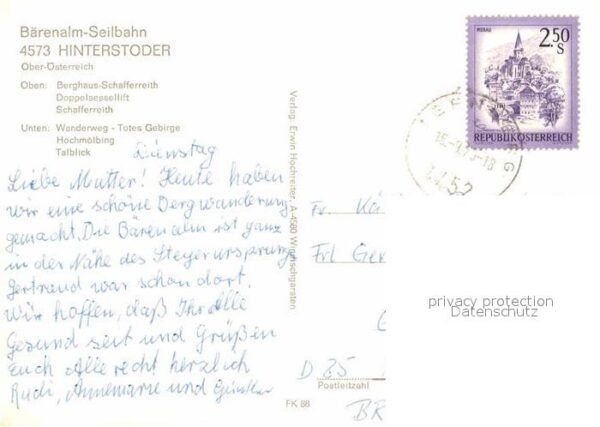 Bärenalm-Seilbahn
4573 HINTERSTODER
Ober-Österreich
Oben: Berghaus-Schafferreith
Doppelsessellift
Schafferreith
Unten: Wanderweg - Totes Gebirge
Hochmölbing
Talblick
Dienstag
Liebe Mutter! Heute haben
wir eine schöne Bergwanderung
gemacht. Die Bärenalm ist ganz
in der Nähe des Steyerursprungs
Gertraud war schon dort.
Wir hoffen, daß Ihr alle
Gesund seit und Grüßen
Euch Alle recht herzlich
Rudi, Annemarie und Günther
Verlag: Erwin Hochreiter, A-4580 Windischgarsten
FK 88
MURAU
2.50
S
REPUBLIK ÖSTERREICH
Fr.
Frl Ger
D 85
Postleitzahl
BR
privacy protection
Datenschutz